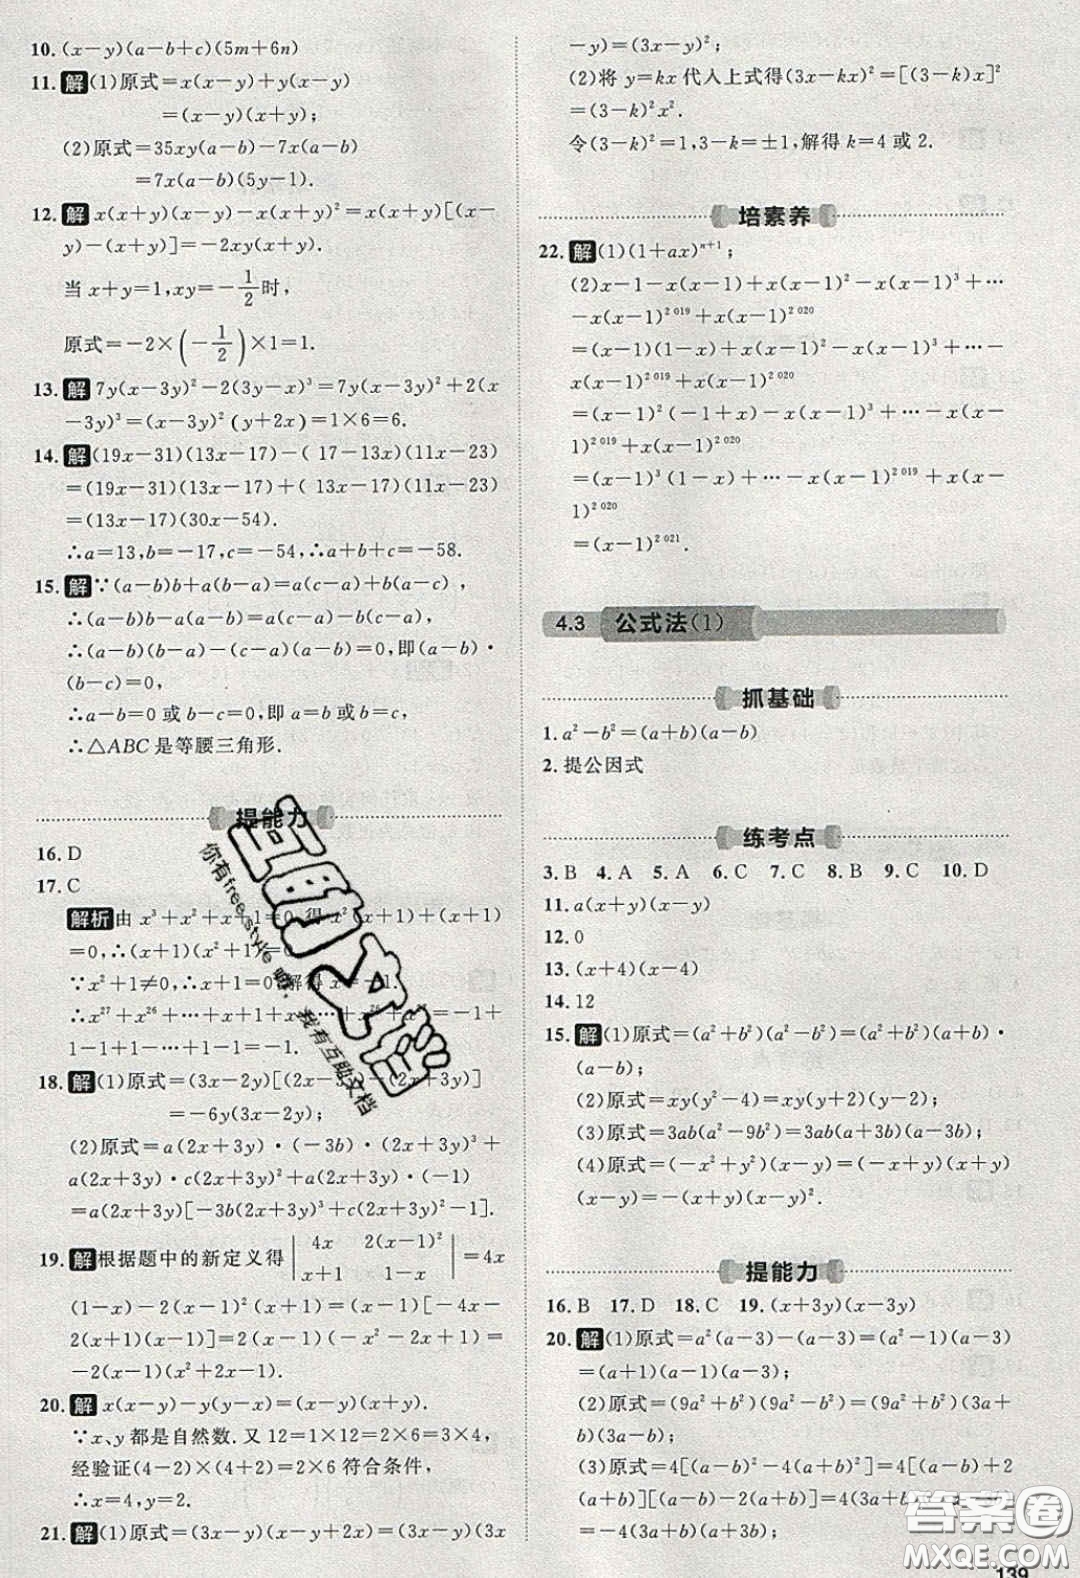 10. (x-y)(a-b+c)(5m+6n)
11. 解 (1)原式=x(x-y)+y(x-y)
=(x-y)(x+y);
(2)原式=35xy(a-b)-7x(a-b)
=7x(a-b)(5y-1).
12. 解 x(x+y)(x-y)-x(x+y)²=x(x+y)[(x-
y)-(x+y)]=-2xy(x+y).
当 x+y=1,xy=-1/2时,
原式=-2×(-1/2)×1=1.
13. 解 7y(x-3y)²-2(3y-x)³=7y(x-3y)²+2(x
-3y)³=(x-3y)²(y+2x)=1×6=6.
14. 解 (19x-31)(13x-17)-(17-13x)(11x-23)
=(19x-31)(13x-17)+(13x-17)(11x-23)
=(13x-17)(30x-54).
∴a=13,b=-17,c=-54,∴a+b+c=-58.
15. 解 ∵(a-b)b+a(b-a)=a(c-a)+b(a-c),
∴(a-b)b-a(a-b)=a(c-a)-b(c-a),
∴(a-b)(b-a)-(c-a)(a-b)=0,即(a-b)·
(b-c)=0,
∴a-b=0或b-c=0,即a=b或b=c,
∴△ABC是等腰三角形.
提能力
16. D
17. C
解析 由 x³+x²+x+1=0,得 x²(x+1)+(x+1)
=0,∴(x+1)(x²+1)=0.
∵x²+1≠0,∴解得x=-1.
∴x²⁷+x²⁶+…+x+1+x+…+x²⁶+x²⁷=-1+
1-1+1-…+1-1=-1.
18. 解 (1)原式=(3x-2y)[(2x-3y)-(2x+3y)]
=-6y(3x-2y);
(2)原式=a(2x+3y)·(-3b)·(2x+3y)³+
a(2x+3y)·c(2x+3y)²+a(2x+3y)·(-1)
=a(2x+3y)[-3b(2x+3y)³+c(2x+3y)²-1].
19. 解 根据题中的新定义得 |4x 2(x-1)²| =4x
|x+1 1-x|
(1-x)-2(x-1)²(x+1)=(x-1)[-4x-
2(x+1)(x-1)]=2(x-1)(-x²-2x+1)=
-2(x-1)(x²+2x-1).
20. 解 x(x-y)-y(y-x)=(x-y)(x+y).
∵x、y都是自然数.又12=1×12=2×6=3×4,
经验证(4-2)×(4+2)=2×6符合条件,
∴x=4,y=2.
21. 解 (1)原式=(3x-y)(x-y+2x)=(3x-y)(3x
-y)=(3x-y)²;
(2)将 y=kx 代入上式得(3x-kx)²=[(3-k)x]²
=(3-k)²x².
令(3-k)²=1,3-k=±1,解得k=4或2.
培素养
22. 解 (1)(1+ax)ⁿ⁺¹;
(2)x-1-x(x-1)+x(x-1)²-x(x-1)³+…
-x(x-1)²⁰¹⁹+x(x-1)²⁰²⁰
=(x-1)(1-x)+x(x-1)²-x(x-1)³+…-
x(x-1)²⁰¹⁹+x(x-1)²⁰²⁰
=(x-1)²(-1+x)-x(x-1)³+…-x(x-
1)²⁰¹⁹+x(x-1)²⁰²⁰
=(x-1)³(x-1)+…-x(x-1)²⁰¹⁹+x(x-
1)²⁰²⁰
=(x-1)²⁰²¹.
4.3 公式法(1)
抓基础
1. a²-b²=(a+b)(a-b)
2. 提公因式
练考点
3. B 4. A 5. A 6. C 7. C 8. B 9. C 10. D
11. a(x+y)(x-y)
12. 0
13. (x+4)(x-4)
14. 12
15. 解 (1)原式=(a²+b²)(a²-b²)=(a²+b²)(a+b)·
(a-b);
(2)原式=xy(y²-4)=xy(y+2)(y-2);
(3)原式=3ab(a²-9b²)=3ab(a+3b)(a-3b);
(4)原式=(-x²+y²)(x-y)=(-x+y)(x+y)
(x-y)=-(x+y)(x-y)².
提能力
16. B 17. D 18. C 19. (x+3y)(x-3y)
20. 解 (1)原式=a²(a-3)-(a-3)=(a²-1)(a-3)
=(a+1)(a-1)(a-3);
(2)原式=(9a²+b²)(9a²-b²)=(9a²+b²)(3a+
b)(3a-b);
(3)原式=4[(a-b)²-4(a+b)²]=4[(a-b)+2
(a+b)][(a-b)-2(a+b)]=4(3a+b)(-a-3b)
=-4(3a+b)(a+3b).
139
互助文档
你有free style 吗, 我有互助文档
答案圈
MXQE.COM